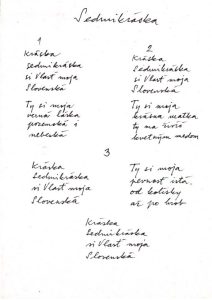 Sedmikráska
1
Kráska
sedmikráska
si Vlasť moja
Slovenská
Ty si moja
verná láska
pozemská i
nebeská
2
Kráska
Sedmikráska
si Vlasť moja
Slovenská
Ty si moja
krásna matka
ty ma živíš
kvetným medom
3
Kráska
Sedmikráska
si Vlasť moja
Slovenská
Ty si moja
pevnosť istá
od kolísky
až po hrob
Kráska
Sedmikráska
si Vlasť moja
Slovenská